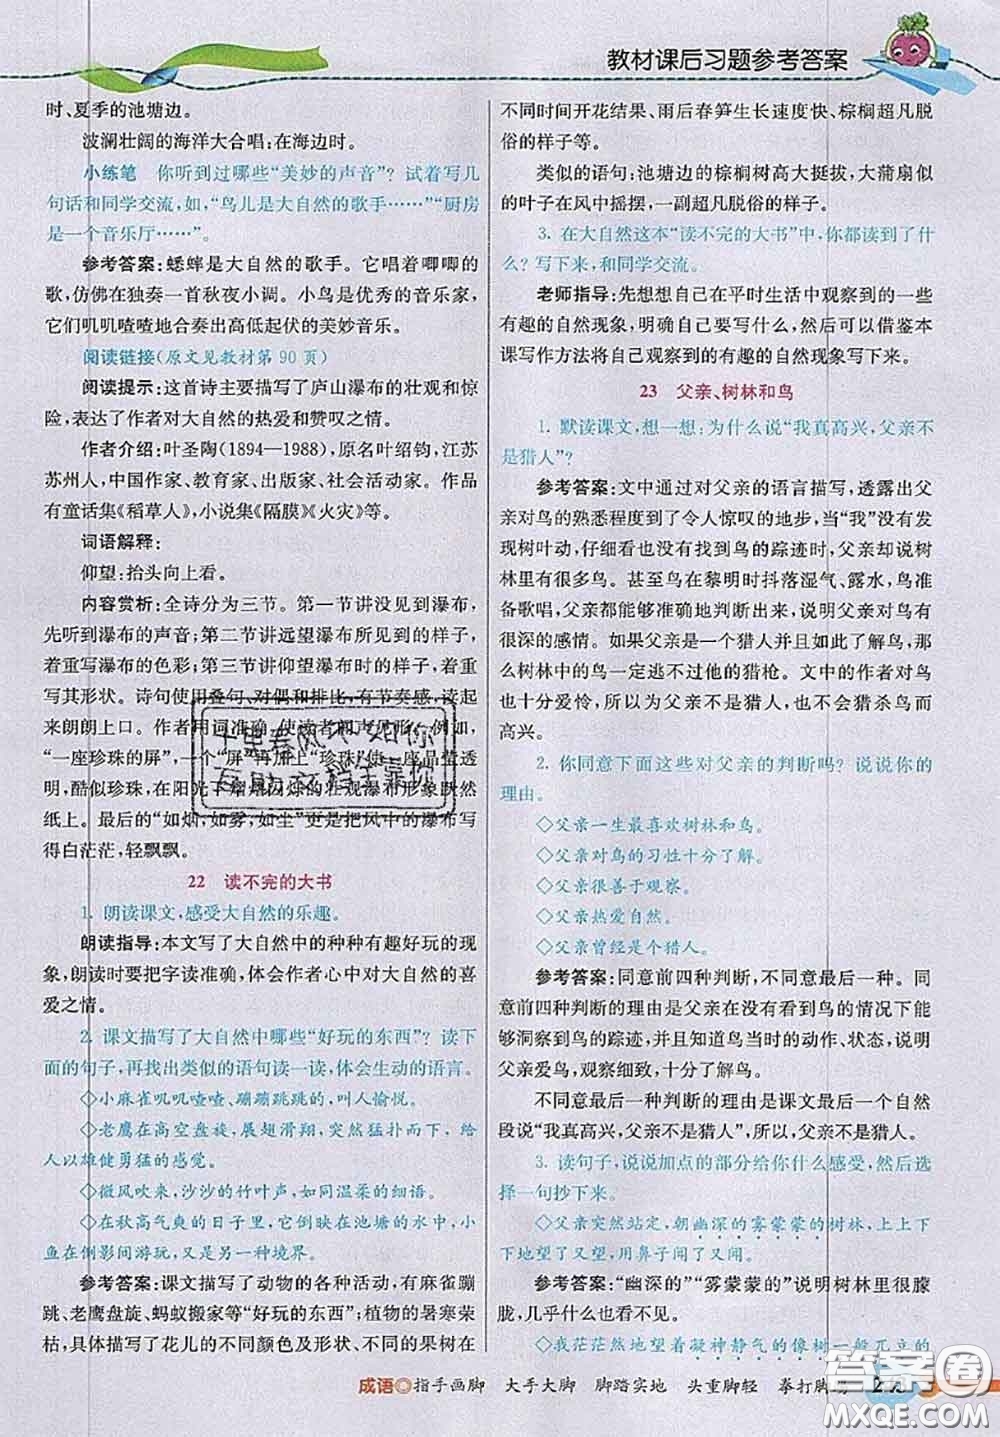 教材课后习题参考答案
时、夏季的池塘边。
波澜壮阔的海洋大合唱:在海边时。
小练笔 你听到过哪些“美妙的声音”? 试着写几
句话和同学交流,如,“鸟儿是大自然的歌手……”“厨房
是一个音乐厅……”。
参考答案:蟋蟀是大自然的歌手。它唱着唧唧的
歌,仿佛在独奏一首秋夜小调。小鸟是优秀的音乐家,
它们叽叽喳喳地合奏出高低起伏的美妙音乐。
阅读链接(原文见教材第 90 页)
阅读提示:这首诗主要描写了庐山瀑布的壮观和惊
险,表达了作者对大自然的热爱和赞叹之情。
作者介绍:叶圣陶(1894—1988),原叶绍钧,江苏
苏州人,中国作家、教育家、出版家、社会活动家。作品
有童话集《稻草人》,小说集《隔膜》《火灾》等。
词语解释:
仰望:抬头向上看。
内容赏析:全诗分为三节。第一节讲没见到瀑布,
先听到瀑布的声音;第二节讲远望瀑布时的样子,
着重写瀑布的色彩;第三节讲仰望瀑布时的样子,着重
写其形状。诗句使用叠句、对偶和排比,有节奏感,读起
来朗朗上口。作者用词准确,使读者如见其形。例如,
“一座珍珠的屏”,一个“屏”再加上“珍珠”,使作品更精
酷似珍珠,在阳光下熠熠闪烁的瀑布形象跃然
纸上。最后的“如烟,如雾,如尘”更是把风中的瀑布写
得白茫茫,轻飘飘。
22 读不完的大书
1. 朗读课文,感受大自然的乐趣。
朗读指导:本文写了大自然中的种种有趣好玩的现
象,朗读时要把字读准确,体会作者心中对大自然的喜
爱之情。
2. 课文描写了大自然中哪些“好玩的东西”? 读下
面的句子,再找出类似的语句读一读,体会生动的语言。
◇小麻雀叽叽喳喳、蹦蹦跳跳的,叫人愉悦。
◇老鹰在高空盘旋,展翅滑翔,突然猛扑下来,给
人以雄健勇猛的感觉。
◇微风吹来,沙沙的竹叶声,如同温柔的细语。
◇在秋高气爽的日子里,它倒映在池塘的水中,小
鱼在倒影间游玩,又是另一种境界。
参考答案:课文描写了动物的各种活动,有麻雀蹦
跳、老鹰盘旋、蚂蚁搬家等“好玩的东西”;植物的暑寒荣
枯,具体描写了花儿的不同颜色及形状、不同的果树在
不同时间开花结果、雨后春笋生长速度快、棕榈超凡脱
俗的样子等。
类似的语句:池塘边的棕榈树高大挺拔,大蒲扇似
的叶子在风中摇摆,一副超凡脱俗的样子。
3. 在大自然这本“读不完的大书”中,你都读到了什
么? 写下来,和同学交流。
老师指导:先想想自己在平时生活中观察到的一些
有趣的自然现象,明确自己要写什么,然后可以借鉴本
课写作方法将观察到的有趣的自然现象写下来。
23 父亲、树林和鸟
1. 默读课文,想一想:为什么说“我真高兴,父亲不
是猎人”?
参考答案:文中通过对父亲的语言描写,透露出父
亲对鸟的熟悉程度到了令人惊叹的地步,当“我”没有发
现树叶动,仔细看也没有找到鸟的踪迹时,父亲却说树
林里有很多鸟。甚至鸟在黎明时抖落湿气、露水,鸟准
备歌唱,父亲都能够准确地判断出来,说明父亲对鸟有
很深的感情。如果父亲是一个猎人又如此了解鸟,那
么树林中的鸟一定逃不过他的猎枪。文中的作者对鸟
也十分爱怜,所以为父亲不是猎人,不会猎杀鸟而
高兴。
2. 你同意下面这些对父亲的判断吗? 说说你的
理由。
◇父亲一生最喜欢树林和鸟。
◇父亲对鸟的习性十分了解。
◇父亲很善于观察。
◇父亲热爱自然。
◇父亲曾经是个猎人。
参考答案:同意前四种判断,不同意最后一种。同
意前四种判断的理由是父亲在没有看到鸟的情况下能
够洞察到鸟的踪迹,并且知道鸟当时的动作、状态,说明
父亲爱鸟,观察细致,十分了解鸟。
不同意最后一种判断的理由是课文最后一个自然
段说“我真高兴,父亲不是猎人”,所以,父亲不是猎人。
3. 读句子,说说加点的部分给你什么感受,然后选
择一句抄下来。
◇父亲突然站定,朝幽深的雾蒙蒙的树林,上上下
下地望了又望,用鼻子闻了又闻。
参考答案:“幽深的”“雾蒙蒙的”说明树林里很朦
胧,几乎什么也看不见。
◇我茫茫然地望着凝神静气的像树一般兀立的
成语◎指手画脚 大手大脚 脚踏实地 头重脚轻 拳打脚踢
答案圈
MXQE.COM